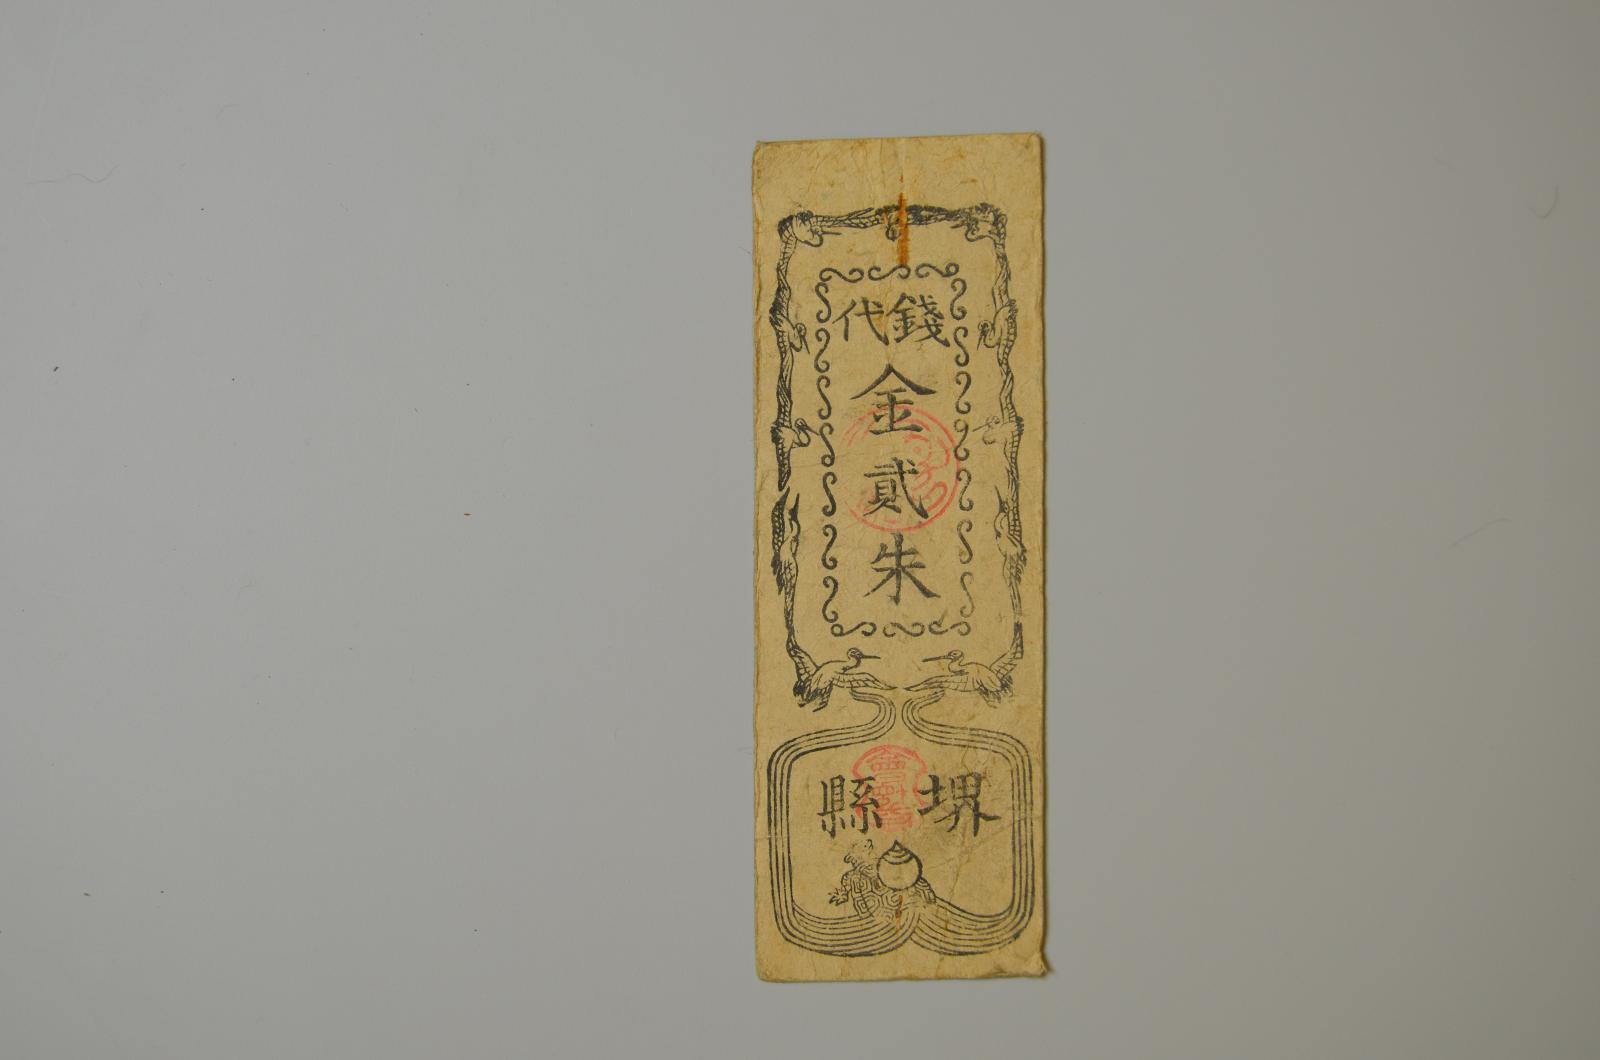 錢代
金貳朱
堺縣